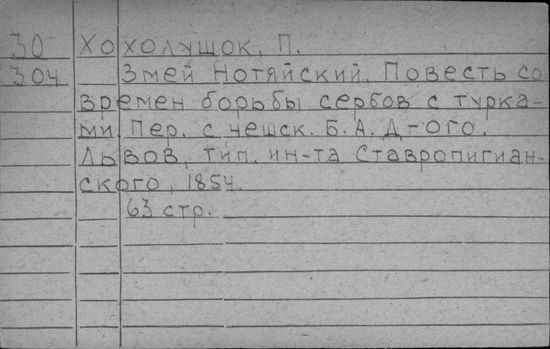 30 Хохолушок, П.
304 Змей Нотяйский. Повесть со
времен борьбы сербов с турка-
ми. Пер. с чешск. Б. А. Д-ого.
Львов, тип. ин-та Ставропигиан-
ского, 1854.
63 стр.